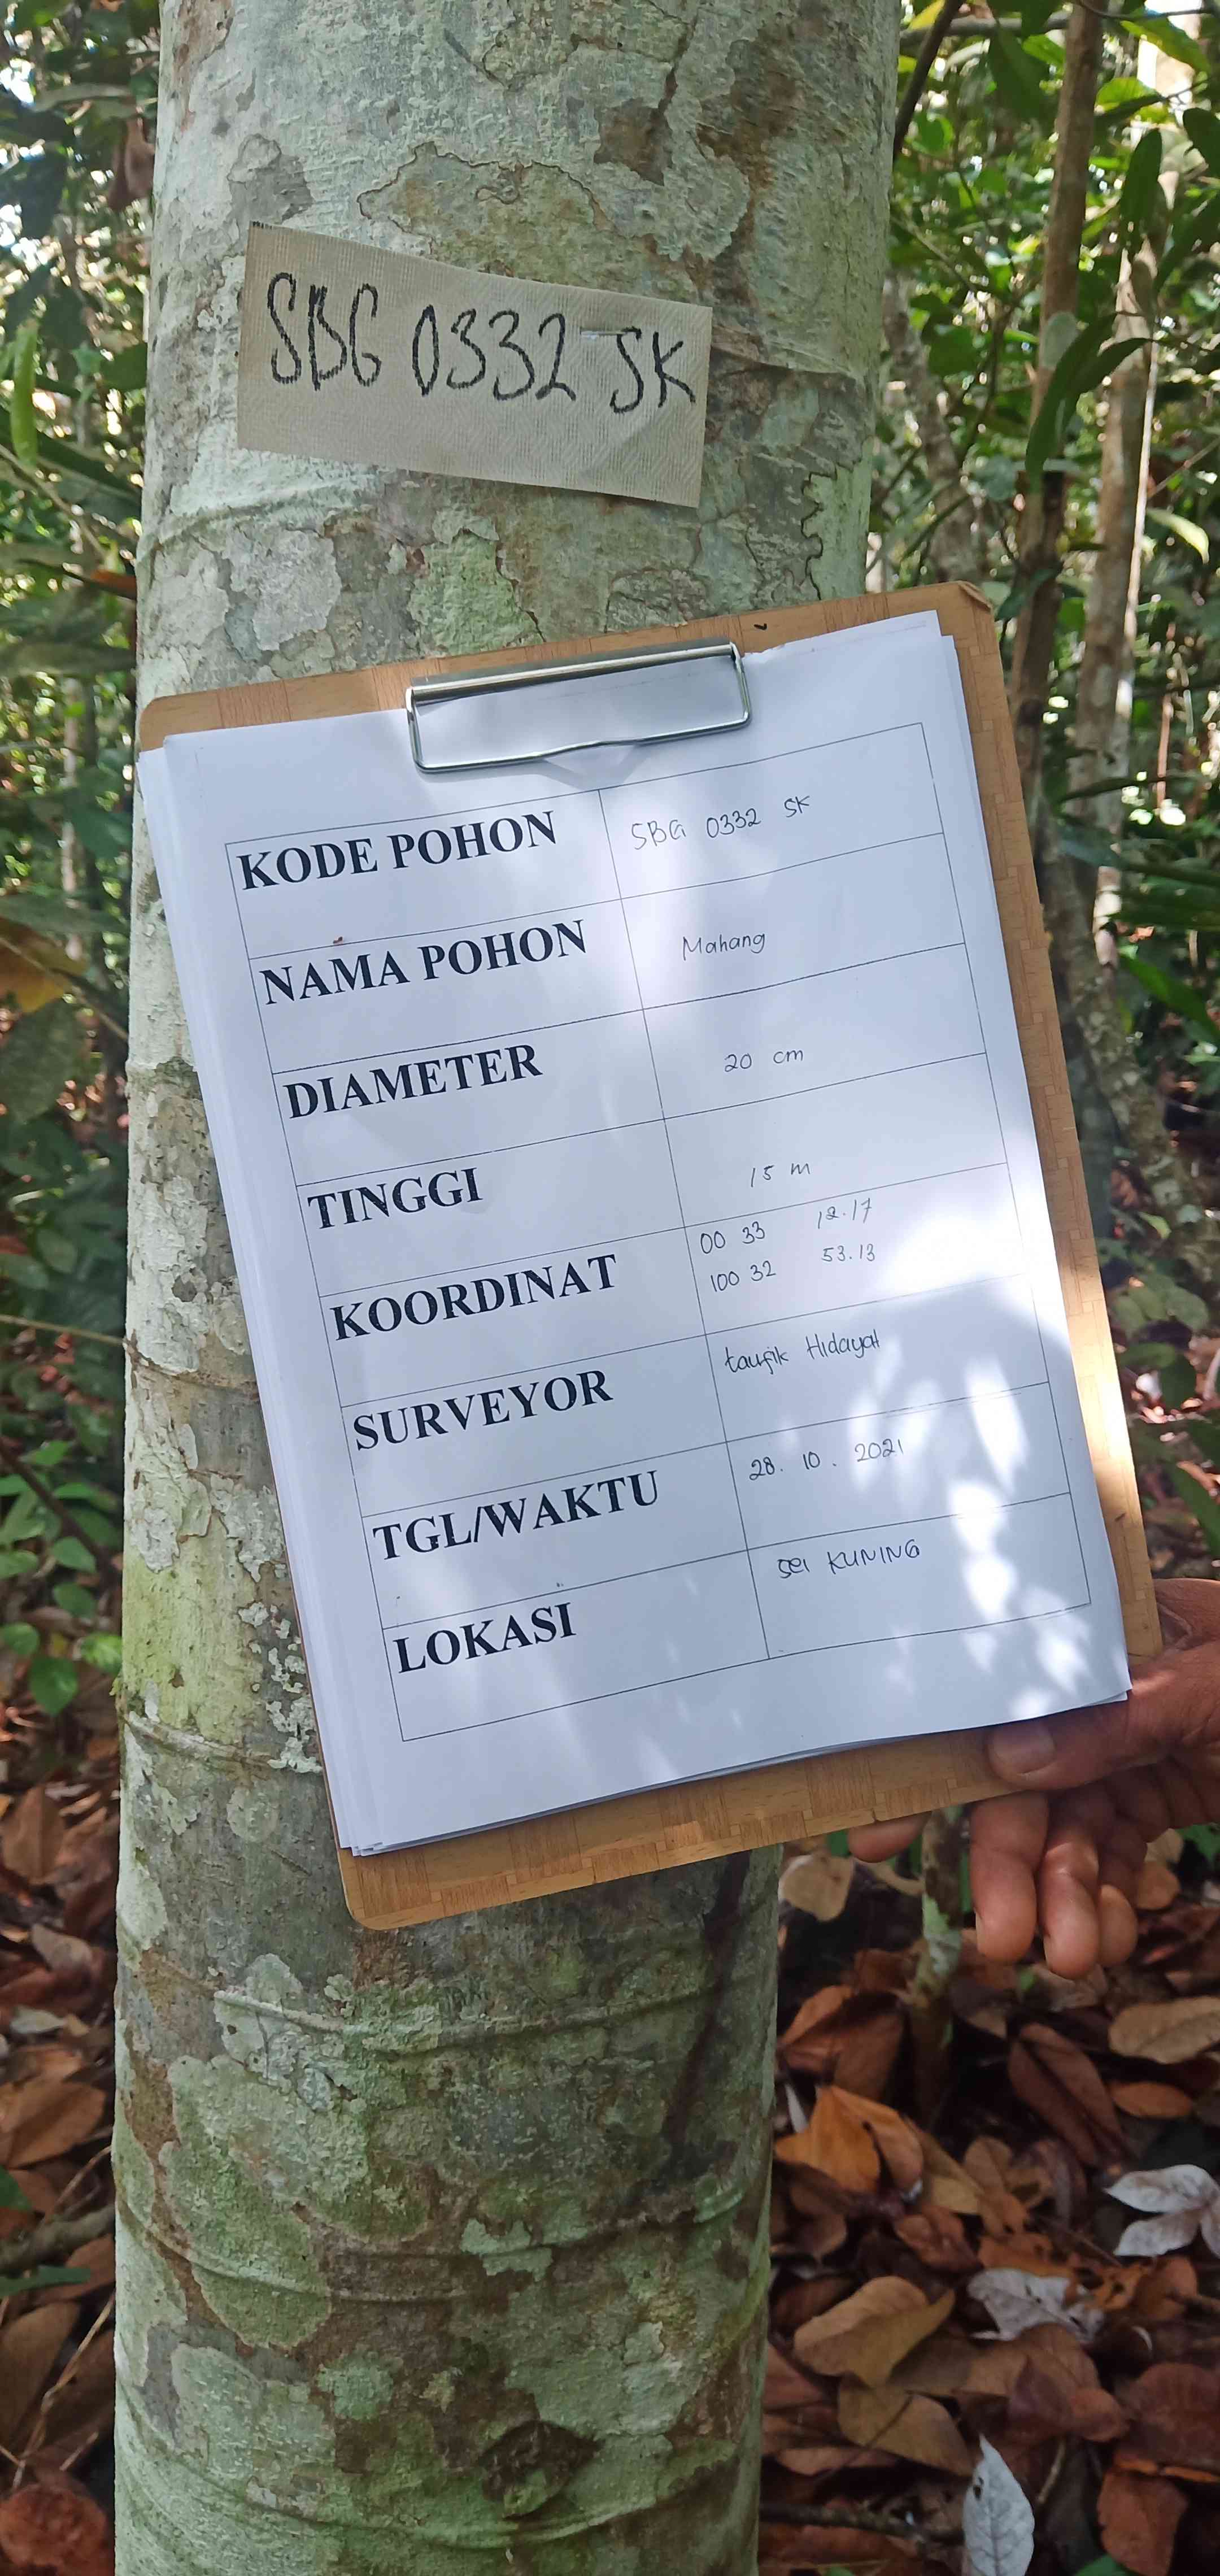 SBG 0332 SK
KODE POHON SBG 0332 SK
NAMA POHON Mahang
DIAMETER 20 cm
TINGGI 15 m
KOORDINAT 00 33 12.17
100 32 53.13
SURVEYOR taufik Hidayat
TGL/WAKTU 28. 10. 2021
LOKASI Sei KUNING